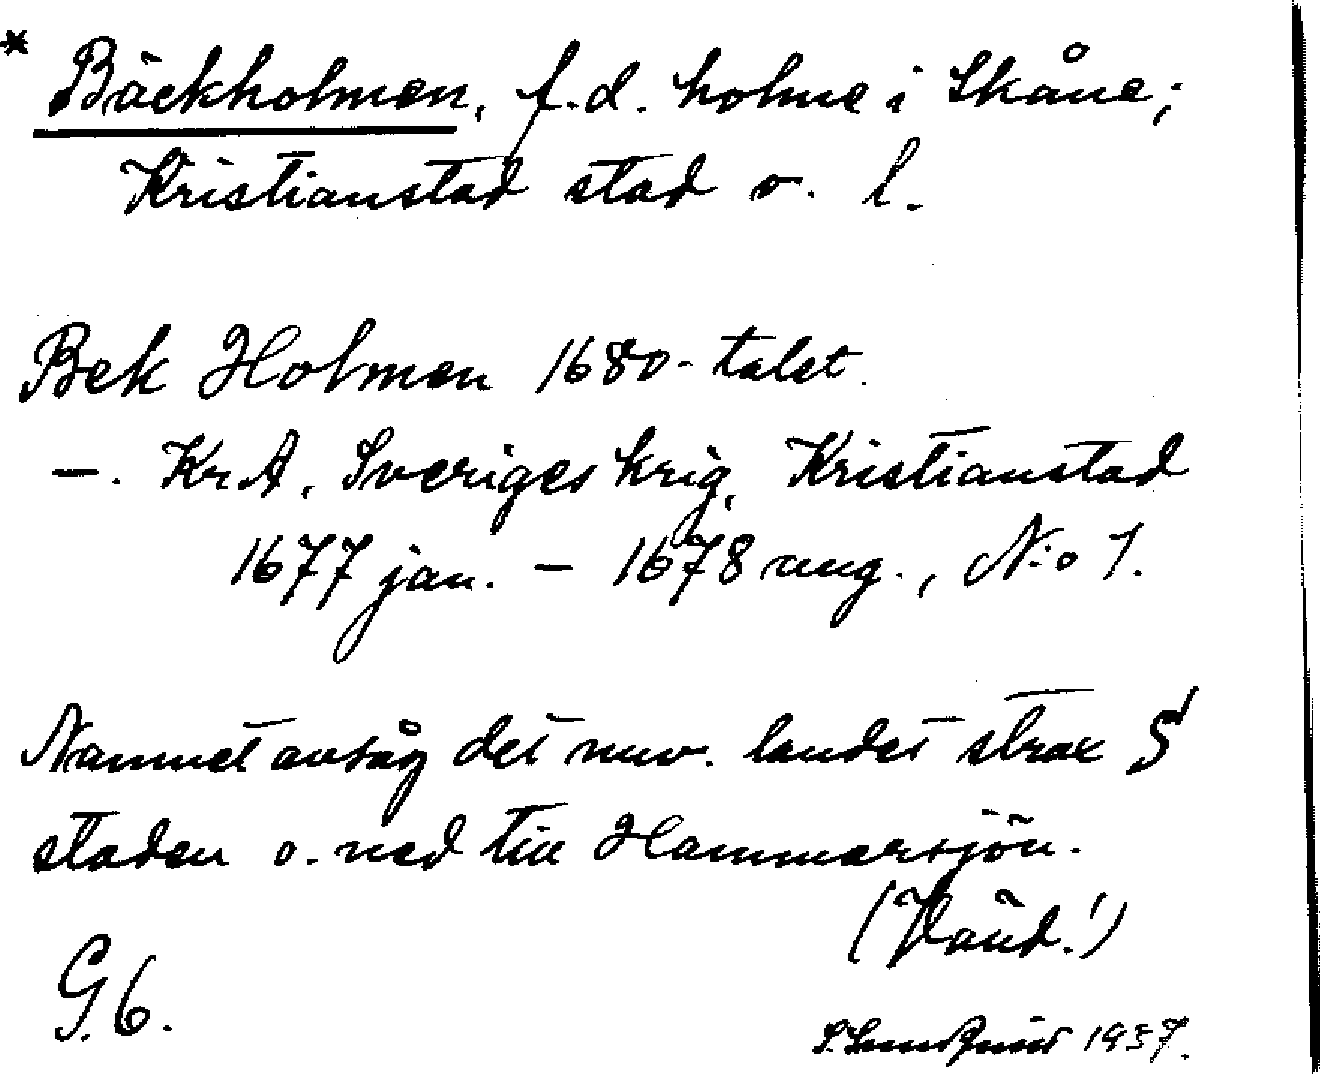 * Bäckholmen, f.d. holme i Skåne;
Kristianstad stad o. l.
Bek Holmen 1680-talet.
—. KrA, Sveriges krig, Kristianstad
1677 jan. – 1678 aug., N:o 7.
Namnet avsåg det nuv. landet strax S
staden o. ned till Hammarsjön.
(Vänd!)
G. 6.
1937.